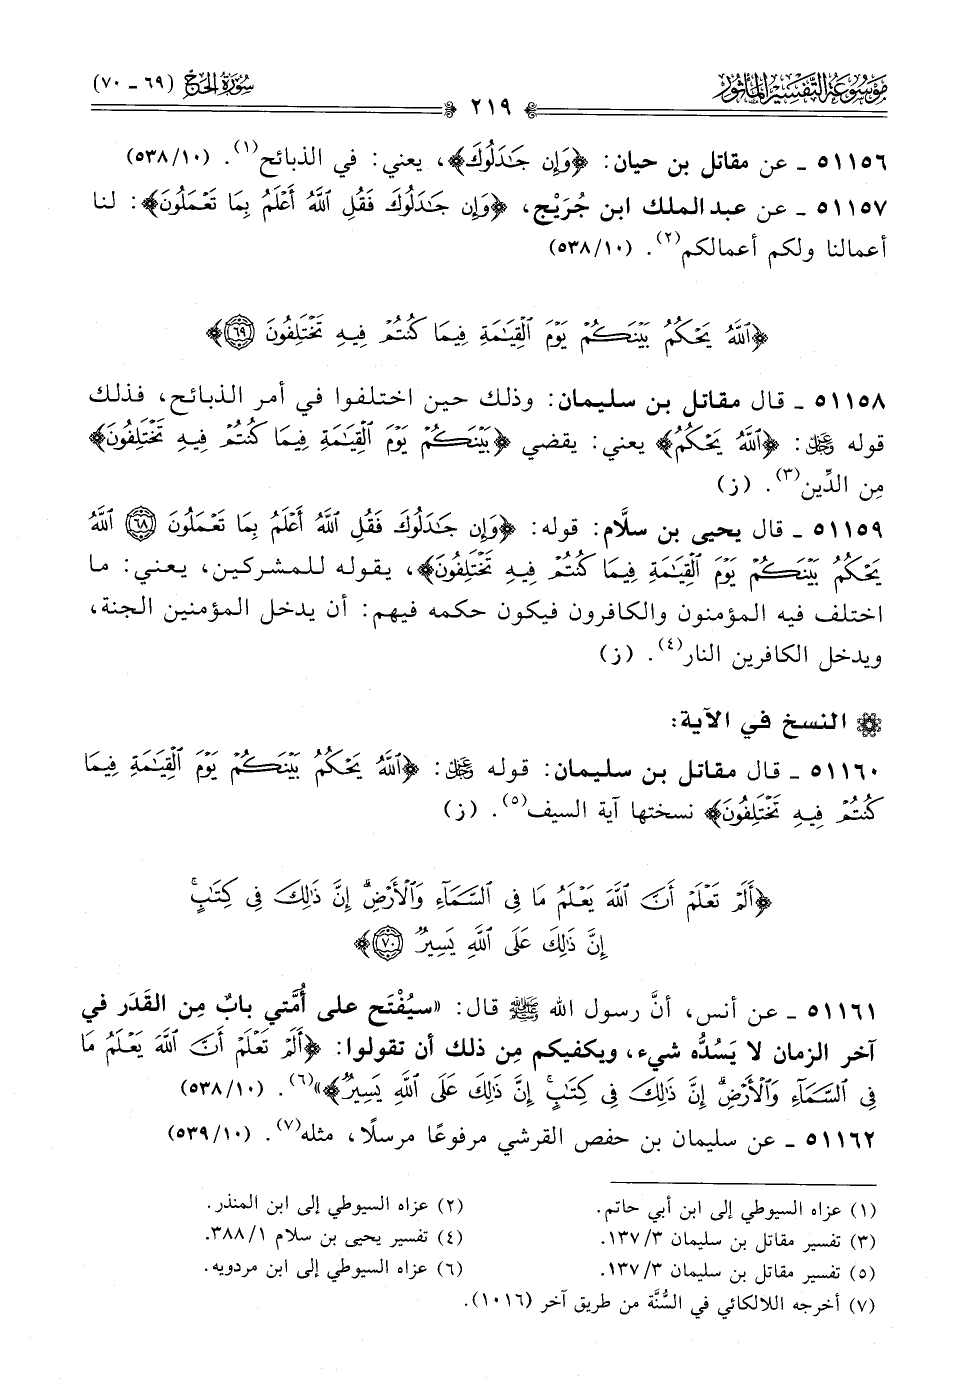 موسوعة التفسير المأثور
سورة الحج (٦٩ - ٧٠)
٢١٩
٥١١٥٦ - عن مقاتل بن حيان: ﴿وَإِن جَٰدَلُوكَ﴾، يعني: في الذبائح(١). (٥٣٨/١٠)
٥١١٥٧ - عن عبد الملك ابن جُرَيْج، ﴿وَإِن جَٰدَلُوكَ فَقُلِ ٱللَّهُ أَعْلَمُ بِمَا تَعْمَلُونَ﴾: لنا
أعمالنا ولكم أعمالكم(٢). (٥٣٨/١٠)
﴿ٱللَّهُ يَحْكُمُ بَيْنَكُمْ يَوْمَ ٱلْقِيَٰمَةِ فِيمَا كُنتُمْ فِيهِ تَخْتَلِفُونَ ٦٩﴾
٥١١٥٨ - قال مقاتل بن سليمان: وذلك حين اختلفوا في أمر الذبائح، فذلك
قوله ﷿: ﴿ٱللَّهُ يَحْكُمُ﴾ يعني: يقضي ﴿بَيْنَكُمْ يَوْمَ ٱلْقِيَٰمَةِ فِيمَا كُنتُمْ فِيهِ تَخْتَلِفُونَ﴾
مِن الدِّين(٣). (ز)
٥١١٥٩ - قال يحيى بن سلَّام: قوله: ﴿وَإِن جَٰدَلُوكَ فَقُلِ ٱللَّهُ أَعْلَمُ بِمَا تَعْمَلُونَ ٦٨ ٱللَّهُ
يَحْكُمُ بَيْنَكُمْ يَوْمَ ٱلْقِيَٰمَةِ فِيمَا كُنتُمْ فِيهِ تَخْتَلِفُونَ﴾، يقوله للمشركين، يعني: ما
اختلف فيه المؤمنون والكافرون فيكون حكمه فيهم: أن يدخل المؤمنين الجنة،
ويدخل الكافرين النار(٤). (ز)
النسخ في الآية:
٥١١٦٠ - قال مقاتل بن سليمان: قوله ﷿: ﴿ٱللَّهُ يَحْكُمُ بَيْنَكُمْ يَوْمَ ٱلْقِيَٰمَةِ فِيمَا
كُنتُمْ فِيهِ تَخْتَلِفُونَ﴾ نسختها آية السيف(٥). (ز)
﴿أَلَمْ تَعْلَمْ أَنَّ ٱللَّهَ يَعْلَمُ مَا فِى ٱلسَّمَآءِ وَٱلْأَرْضِ ۗ إِنَّ ذَٰلِكَ فِى كِتَٰبٍ ۚ
إِنَّ ذَٰلِكَ عَلَى ٱللَّهِ يَسِيرٌ ٧٠﴾
٥١١٦١ - عن أنس، أنَّ رسول الله ﷺ قال: «سيُفْتَح على أُمَّتي بابٌ مِن القَدَر في
آخر الزمان لا يَسُدُّه شيء، ويكفيكم مِن ذلك أن تقولوا: ﴿أَلَمْ تَعْلَمْ أَنَّ ٱللَّهَ يَعْلَمُ مَا
فِى ٱلسَّمَآءِ وَٱلْأَرْضِ ۗ إِنَّ ذَٰلِكَ فِى كِتَٰبٍ ۚ إِنَّ ذَٰلِكَ عَلَى ٱللَّهِ يَسِيرٌ﴾»(٦). (٥٣٨/١٠)
٥١١٦٢ - عن سليمان بن حفص القرشي مرفوعًا مرسلًا، مثله(٧). (٥٣٩/١٠)
(١) عزاه السيوطي إلى ابن أبي حاتم.
(٢) عزاه السيوطي إلى ابن المنذر.
(٣) تفسير مقاتل بن سليمان ١٣٧/٣.
(٤) تفسير يحيى بن سلام ٣٨٨/١.
(٥) تفسير مقاتل بن سليمان ١٣٧/٣.
(٦) عزاه السيوطي إلى ابن مردويه.
(٧) أخرجه اللالكائي في السُّنَّة من طريق آخر (١٠١٦).